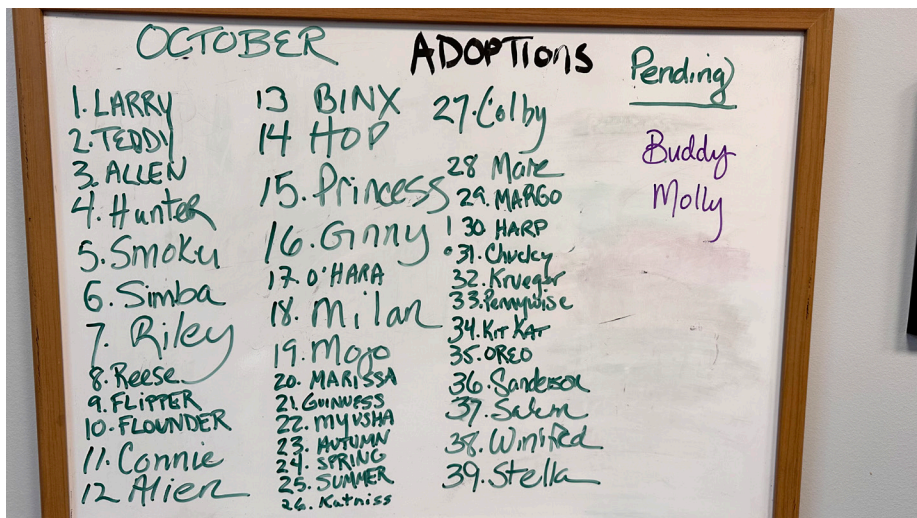 OCTOBER ADOPTIONS
1. LARRY
2. TEDDY
3. ALLEN
4. Hunter
5. Smoku
6. Simba
7. Riley
8. Reese
9. FLIPPER
10. FLOUNDER
11. Connie
12 Alien
13 BINX
14 HOP
15. Princess
16. Ginny
17. O'HARA
18. Milan
19. Mojo
20. MARISSA
21. GUINNESS
22. MYUSHA
23. AUTUMN
24. SPRING
25. SUMMER
26. Katniss
27. Colby
28 Mare
29. MARGO
30 HARP
31. Chucky
32. Krueger
33. Pennywise
34. KIT KAT
35. OREO
36. Sanderson
37. Salem
38. Winifred
39. Stella
Pending
Buddy
Molly